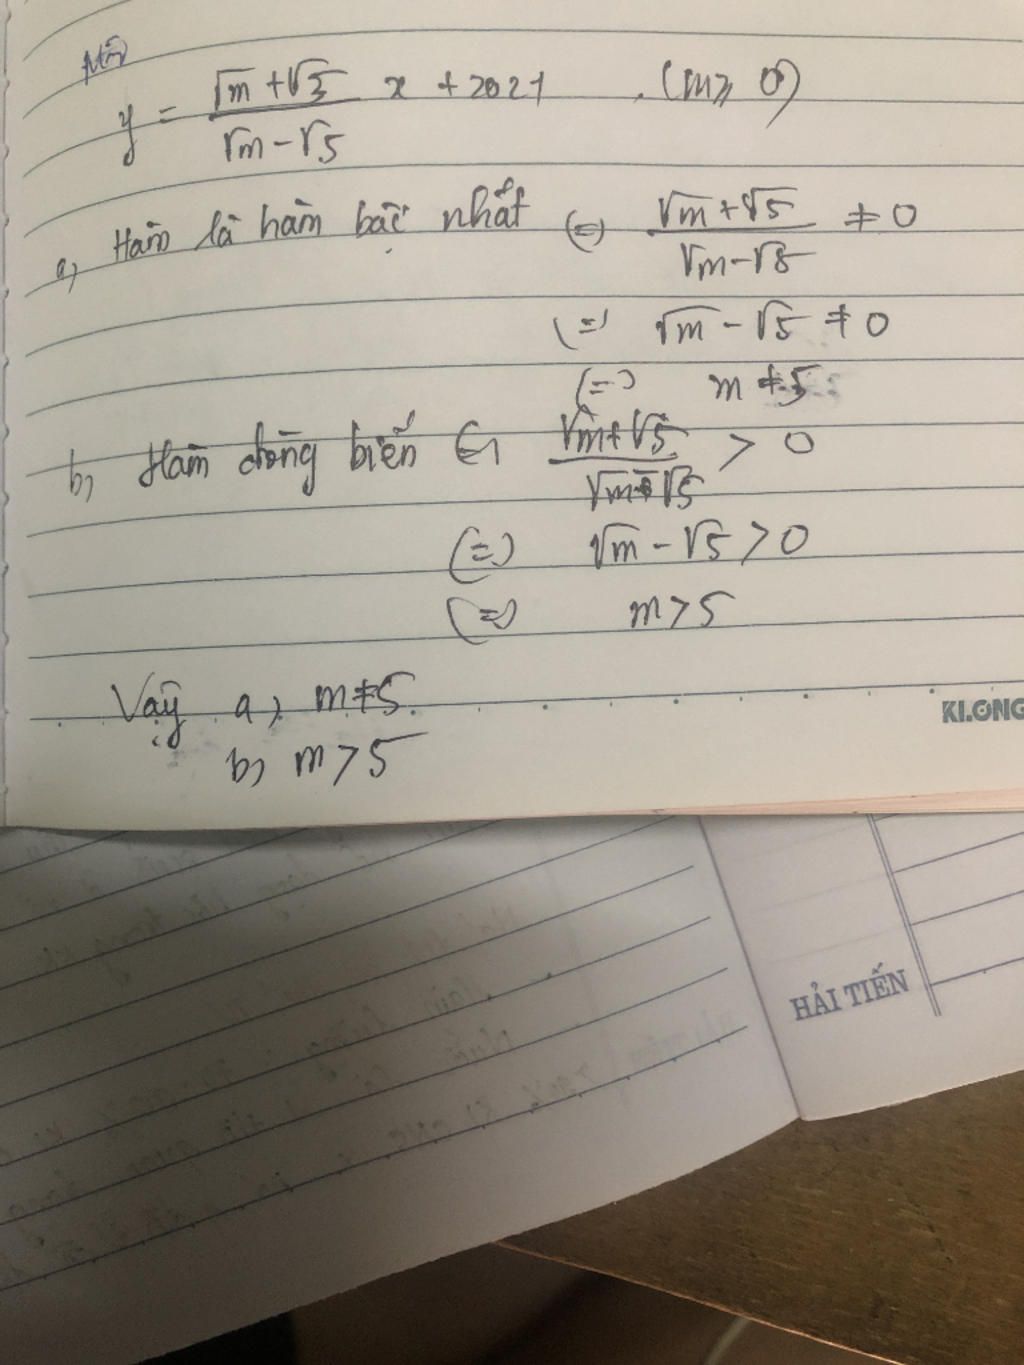 y = (√m + √5)/(√m - √5) x + 2021 . (m ≥ 0)
a, Hàm là hàm bậc nhất (=) (√m + √5)/(√m - √5) ≠ 0
(=) √m - √5 ≠ 0
(=) m ≠ 5
b, Hàm đồng biến (=) (√m + √5)/(√m - √5) > 0
(=) √m - √5 > 0
(=) m > 5
Vậy a, m ≠ 5
KLONG
b, m > 5
HẢI TIẾN